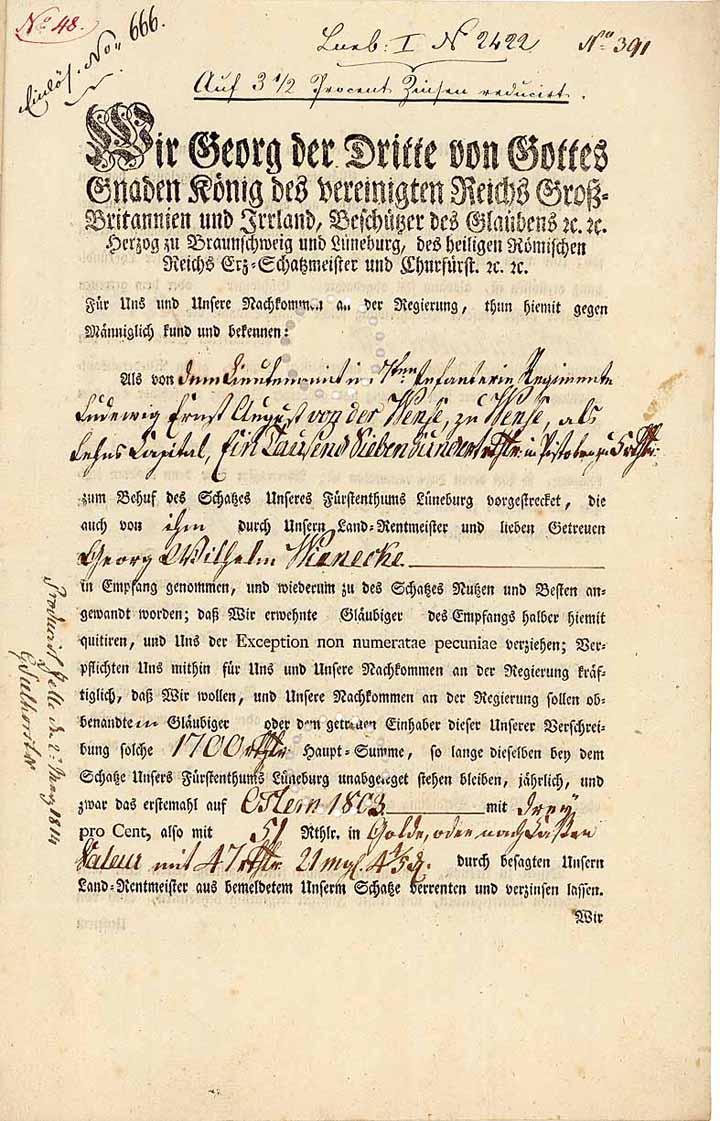 No 48.
Einlös. No 666.
Lüneb: I N 2422
No 391
Auf 3 1/2 Procent Zinsen reducirt.
Wir Georg der Dritte von Gottes
Gnaden König des vereinigten Reichs Groß-
Britannien und Irrland, Beschützer des Glaubens ꝛc. ꝛc.
Herzog zu Braunschweig und Lüneburg, des heiligen Römischen
Reichs Erz-Schatzmeister und Churfürst. ꝛc. ꝛc.
Für Uns und Unsere Nachkommen an der Regierung, thun hiemit gegen
Männiglich kund und bekennen:
Als von dem Lieutenant im 7ten Infanterie Regimente
Ludewig Ernst August von der Wense, zu Wense, als
Lehns Capital, Ein Tausend Sieben Hundert rthlr in Pistolen zu 5 rthlr:
zum Behuf des Schatzes Unseres Fürstenthums Lüneburg vorgestrecket, die
auch von ihm durch Unsern Land-Rentmeister und lieben Getreuen
Georg Wilhelm Wienecke
in Empfang genommen, und wiederum zu des Schatzes Nutzen und Besten an-
gewandt worden; daß Wir erwehnte Gläubiger des Empfangs halber hiemit
quitiren, und Uns der Exception non numeratae pecuniae verziehen; Ver-
pflichten Uns mithin für Uns und Unsere Nachkommen an der Regierung kräf-
tiglich, daß Wir wollen, und Unsere Nachkommen an der Regierung sollen ob-
benandtem Gläubiger oder dem getreuen Einhaber dieser Unserer Verschrei-
bung solche 1700 rthlr Haupt-Summe, so lange dieselben bey dem
Schatze Unsers Fürstenthums Lüneburg unabgeleget stehen bleiben, jährlich, und
zwar das erstemahl auf Ostern 1803 mit drey
pro Cent, also mit 51 Rthlr. in Golde, oder nach Cassen
Valeur mit 47 rthlr 21 mgl. 4 4/5 d. durch besagten Unsern
Land-Rentmeister aus bemeldetem Unserm Schatze verrenten und verzinsen lassen.
Wir
Producirt Zelle d. 2t May 1814